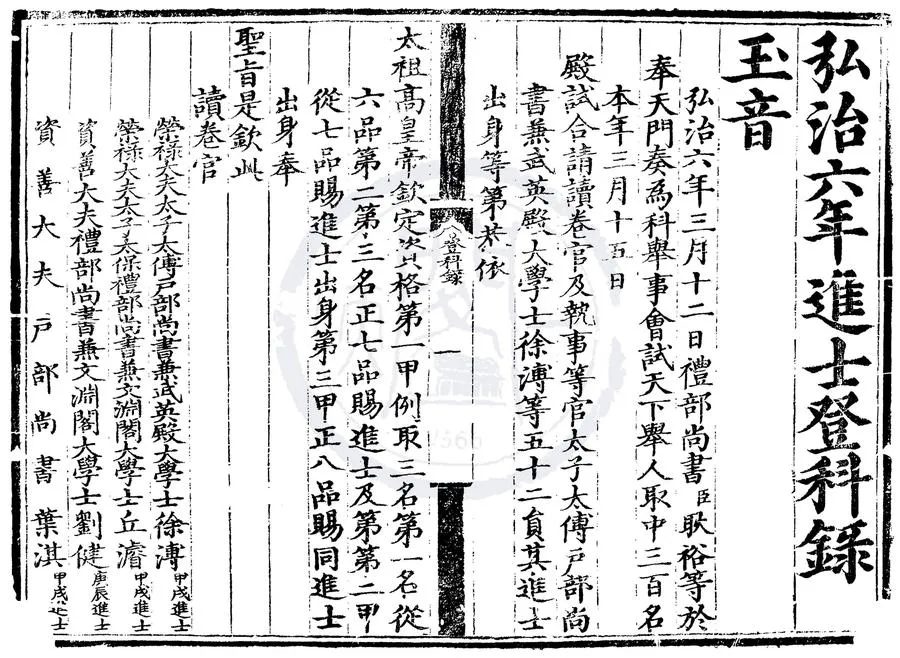 弘治六年進士登科錄
玉音
弘治六年三月十二日禮部尚書臣耿裕等於
奉天門奏為科舉事會試天下舉人取中三百名
本年三月十五日
殿試合請讀卷官及執事等官太子太傅戶部尚
書兼武英殿大學士徐溥等五十二員其進士
出身等第恭依
登科錄
一
太祖高皇帝欽定資格第一甲例取三名第一名從
六品第二第三名正七品賜進士及第第二甲
從七品賜進士出身第三甲正八品賜同進士
出身奉
聖旨是欽此
讀卷官
榮祿大夫太子太傅戶部尚書兼武英殿大學士徐溥 甲戌進士
榮祿大夫太子太保禮部尚書兼文淵閣大學士丘濬 甲戌進士
資善大夫禮部尚書兼文淵閣大學士劉健 庚辰進士
資善大夫戶部尚書葉淇 甲戌進士